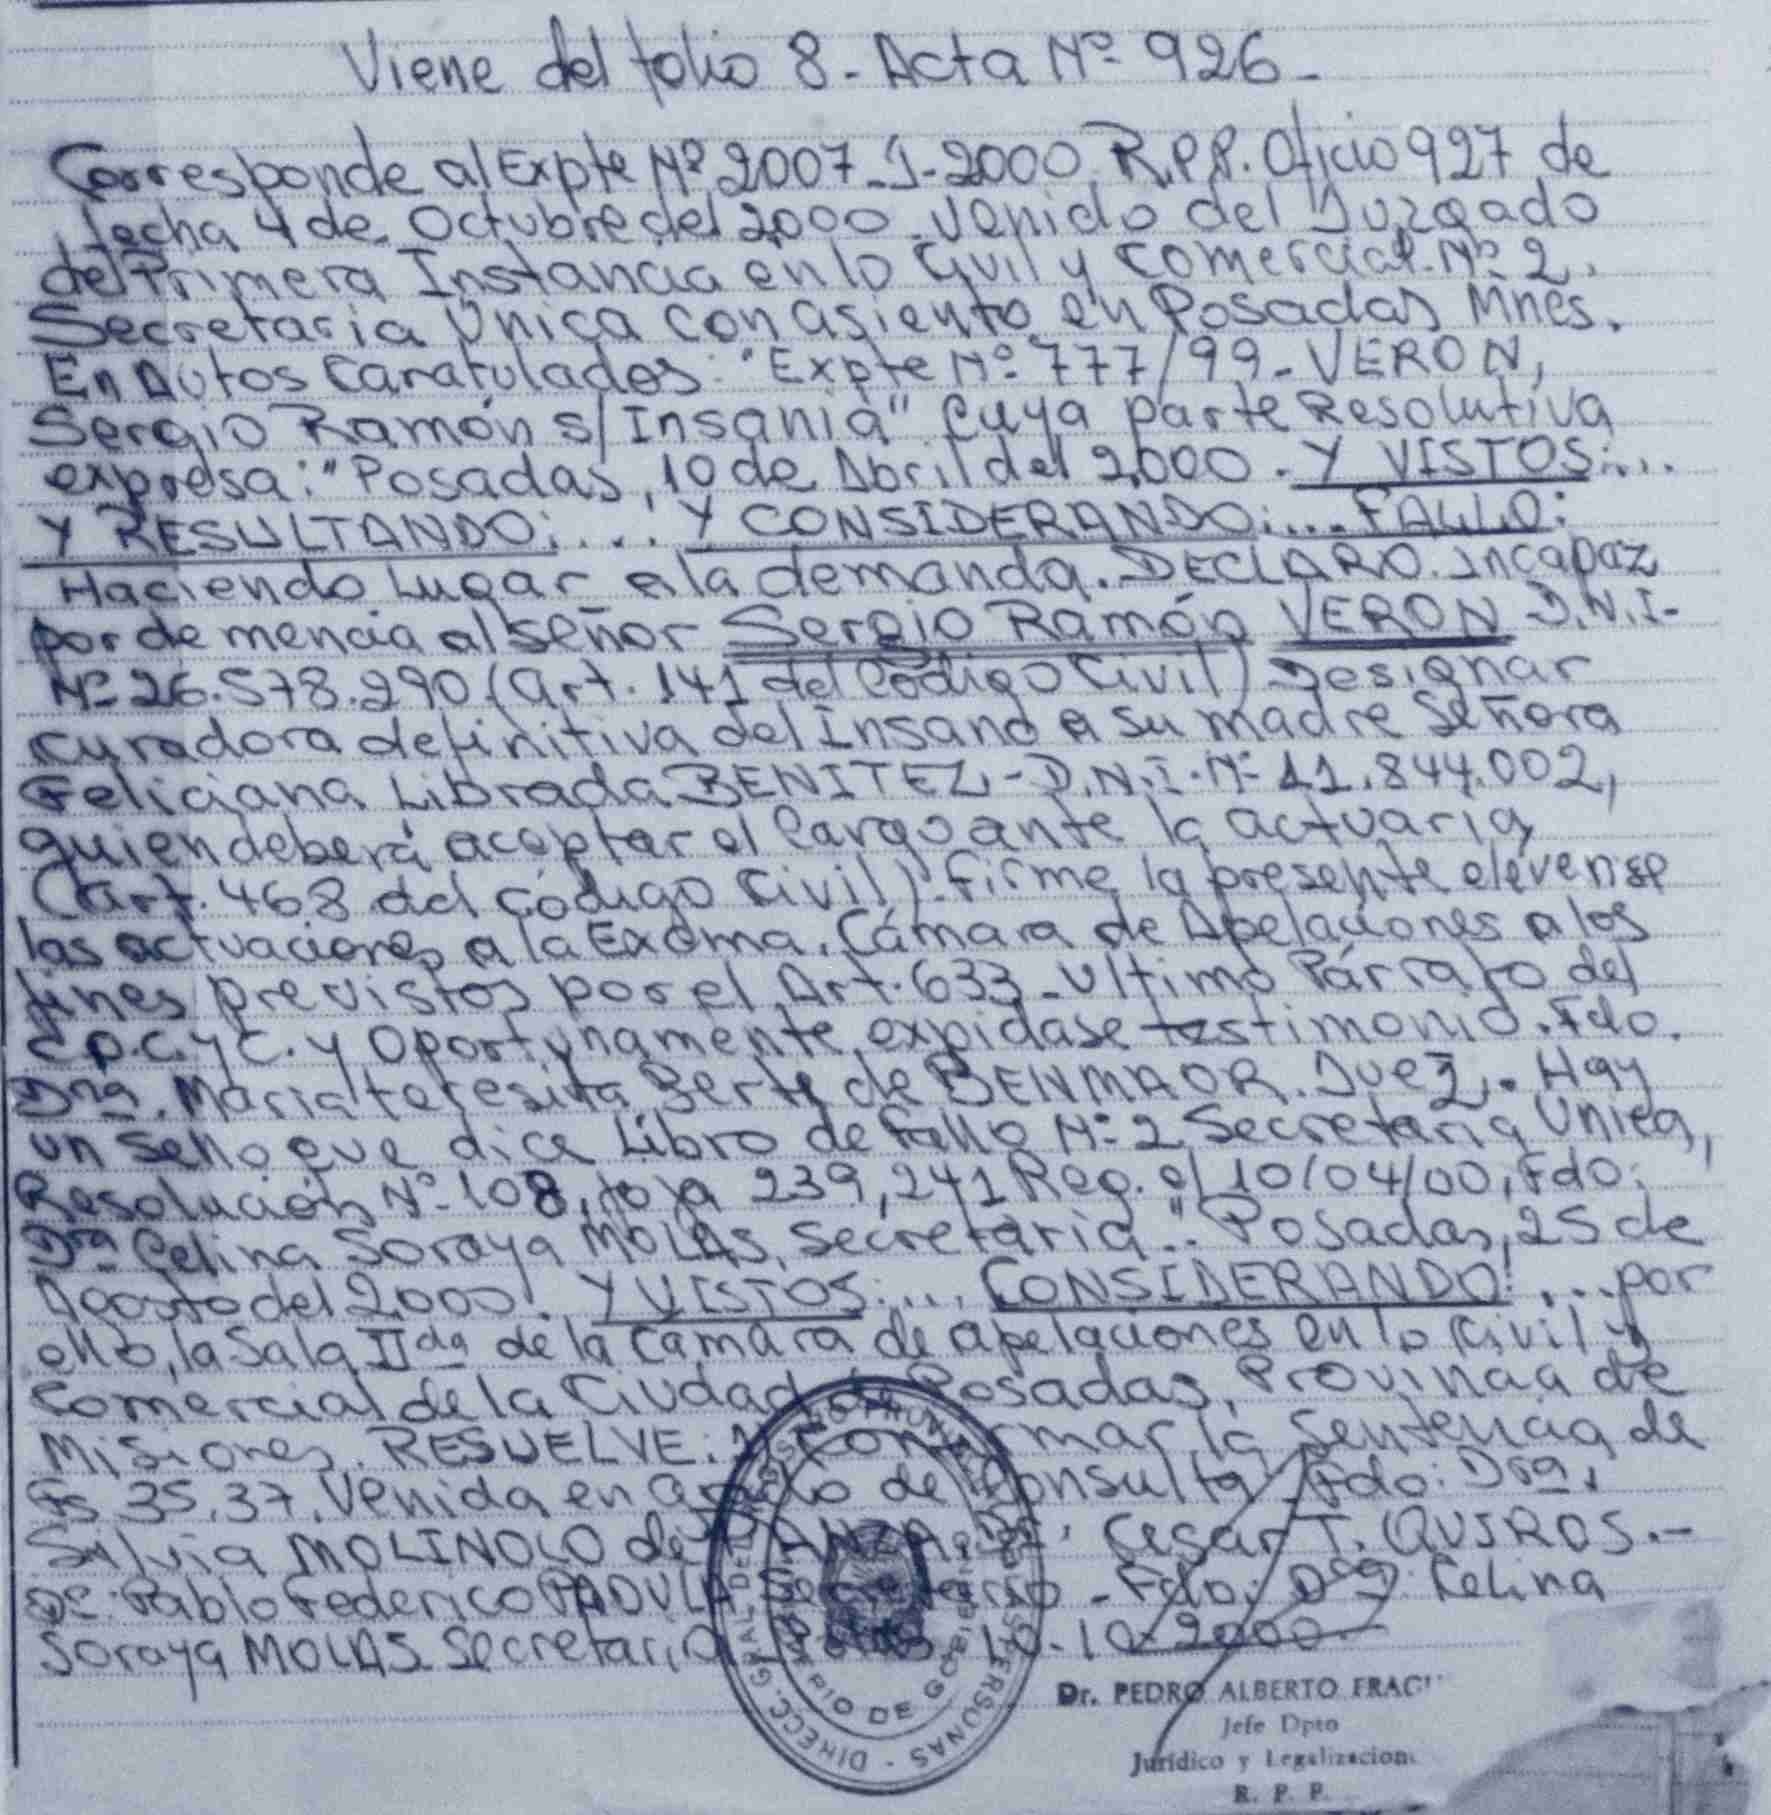 Viene del folio 8 - Acta Nº 926 -
Corresponde al Expte Nº 2007-J-2000 R.P.P. Oficio 927 de
fecha 4 de Octubre del 2000 venido del Juzgado
de Primera Instancia en lo Civil y Comercial Nº 2.
Secretaria Única con asiento en Posadas Mnes.
En Autos Caratulados: "Expte Nº 777/99 - VERON,
Sergio Ramón s/ Insania" Cuya parte Resolutiva
expresa: "Posadas, 10 de Abril del 2000. Y VISTOS: ...
Y RESULTANDO: .... Y CONSIDERANDO: .... FALLO:
Haciendo Lugar a la demanda. DECLARO incapaz
por demencia al Señor Sergio Ramón VERON D.N.I-
Nº 26.578.290 (art. 141 del Código Civil) Designar
curadora definitiva del Insano a su madre Señora
Feliciana Librada BENITEZ - D.N.I. Nº 11.844.002,
quien deberá aceptar el Cargo ante la actuaria
(art. 468 del Código Civil). Firme la presente elévense
las actuaciones a la Excma. Cámara de Apelaciones a los
fines previstos por el Art. 633 - Ultimo Párrafo del
C.P.C. y C. y Oportunamente expidase testimonio. Fdo.
Dra. Maria Teresita de BENMAOR. Juez. Hay
un sello que dice Libro de Fallo Nº 2 Secretaria Unica,
Resolución Nº 108, foja 239, 241 Reg. el 10/04/00, Fdo:
Dra Celina Soraya MOLAS, Secretaria". "Posadas, 25 de
Agosto del 2000. Y VISTOS: .... CONSIDERANDO: .... por
ello, la Sala IIda de la Camara de apelaciones en lo Civil y
Comercial de la Ciudad de Posadas, Provincia de
Misiones. RESUELVE: 1) Confirmar la Sentencia de
Fs 35.37. Venida en grado de Consulta Fdo: Dra.
Silvia MOLINOLO de Dr. Cesar T. QUIROS.-
Dr. Pablo Federico PADULA Secretario - Fdo: Dra Celina
Soraya MOLAS Secretaria 10-10-2000
DIRECC. GRAL DEL REGISTRO PROVINCIAL DE LAS PERSONAS
MINISTERIO DE GOBIERNO
Dr. PEDRO ALBERTO
Jefe Dpto
Jurídico y
R. P. P.